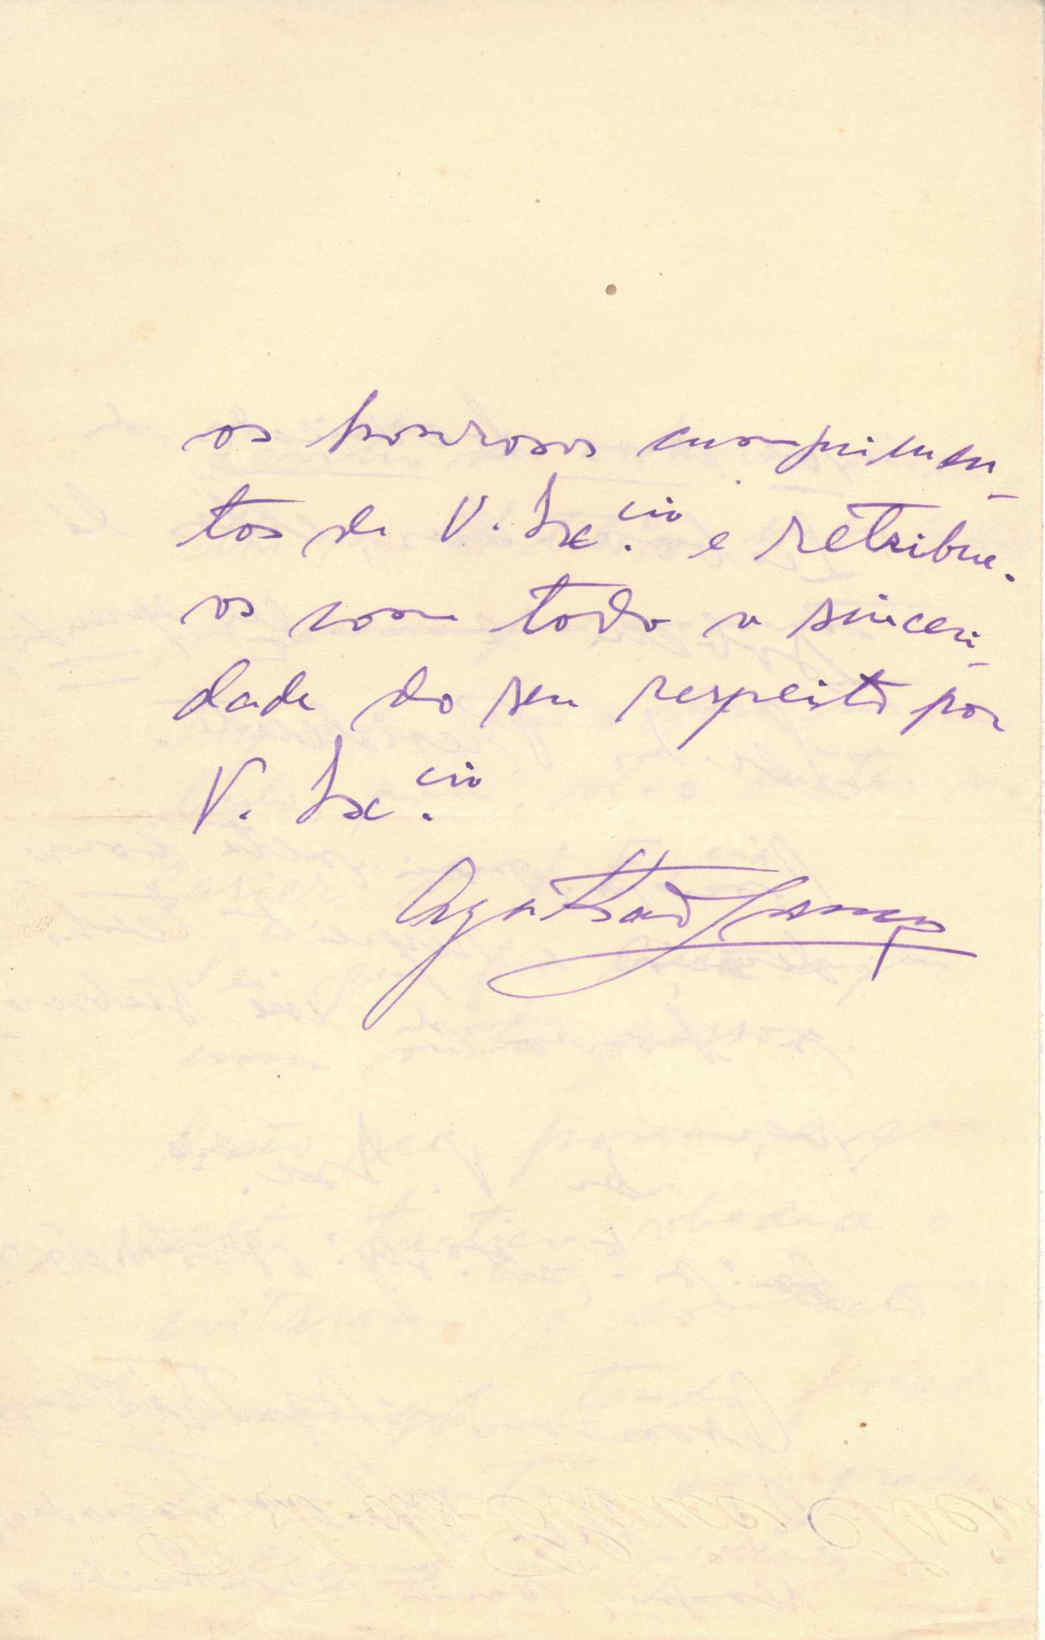 os honrosos cumprimen-
tos de V. Ex.cia e retribue-
os com toda a sinceri-
dade do seu respeito por
V. Ex.cia